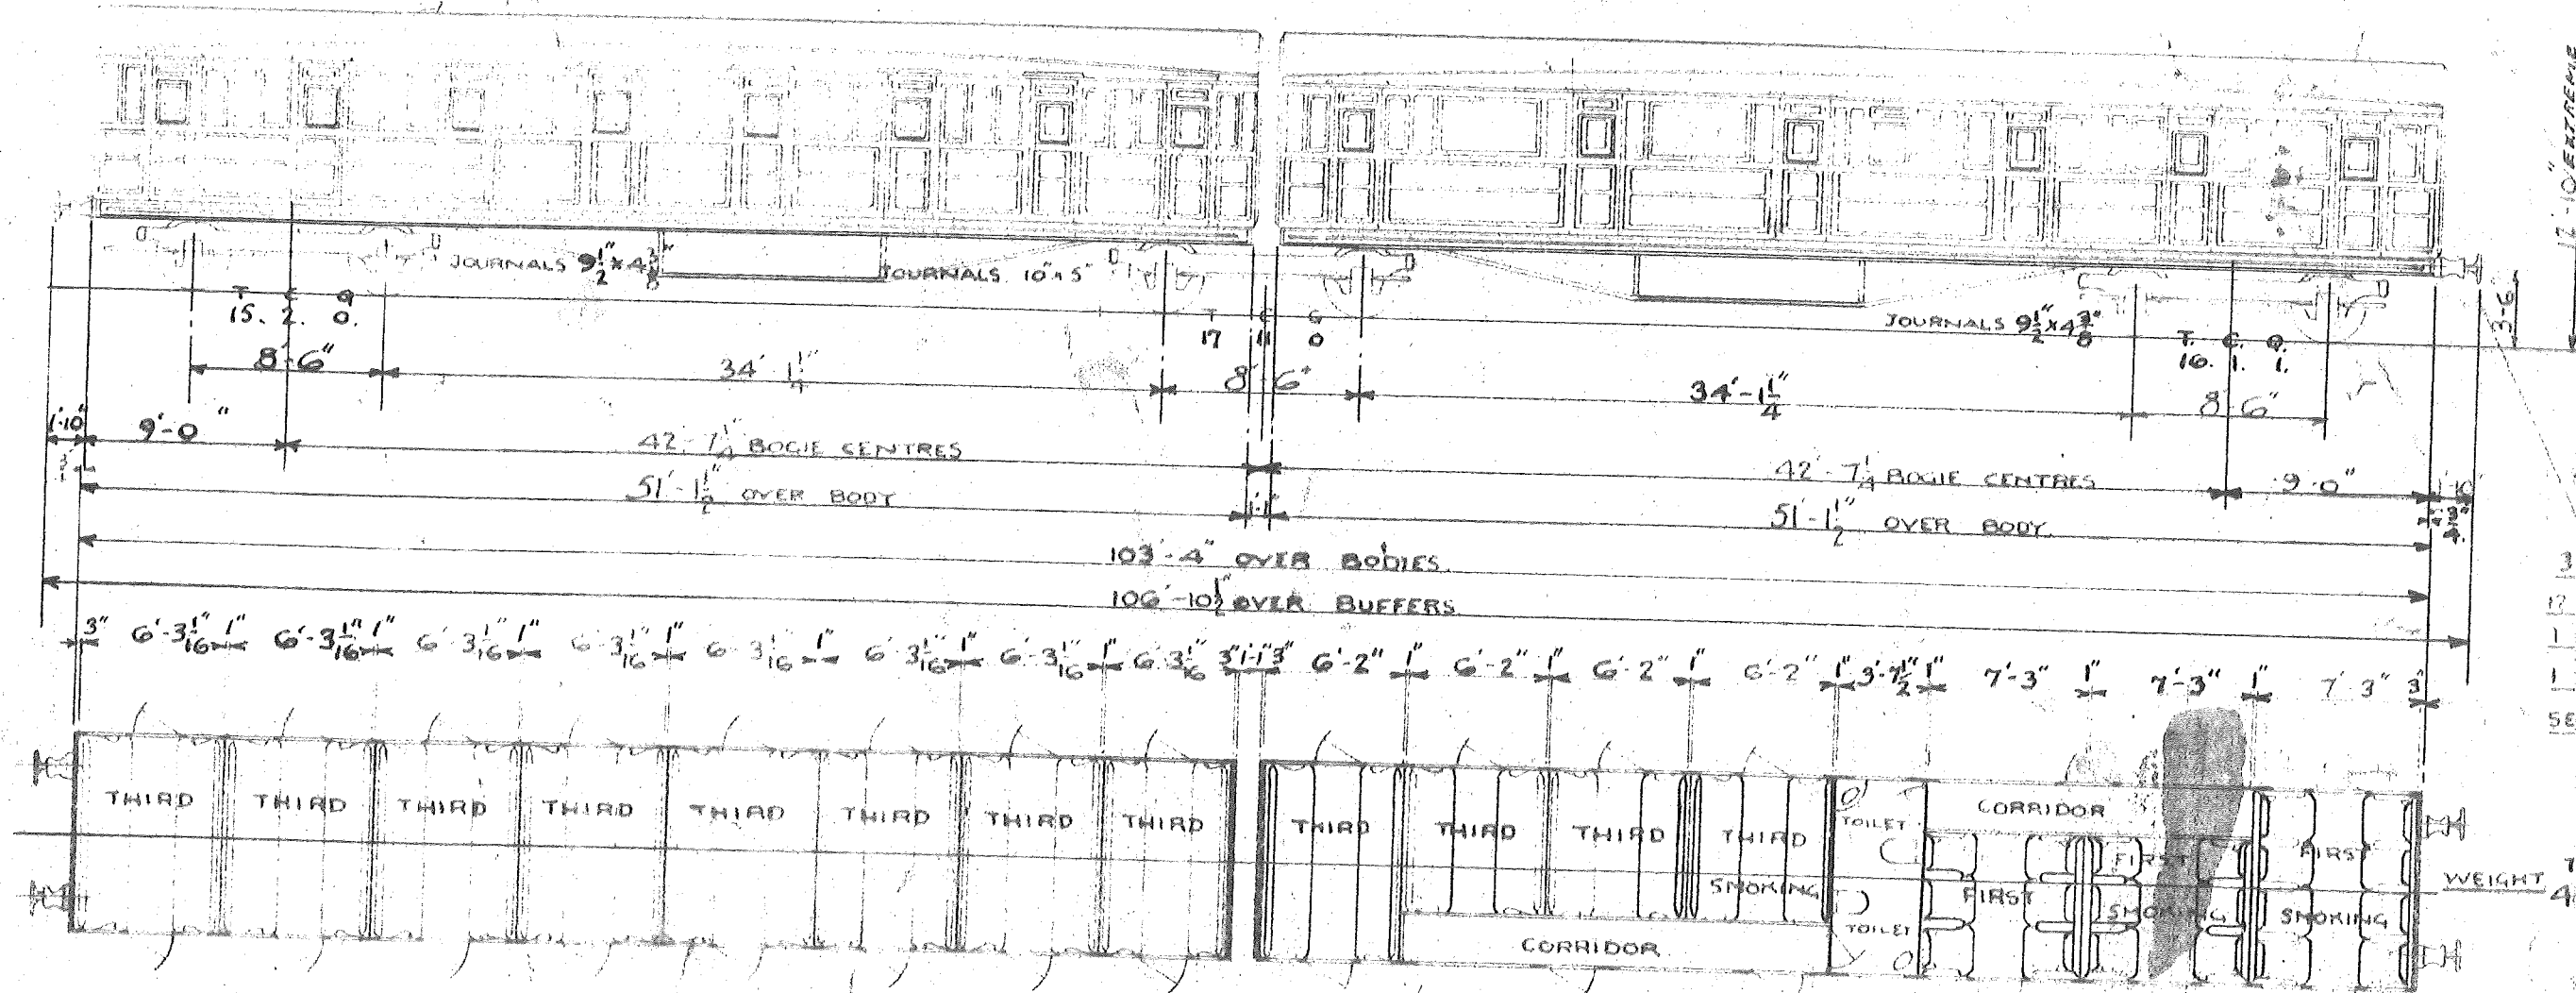 12'-10" EXTREME
JOURNALS 9 1/2" × 4 3/8"
JOURNALS 10" × 5"
JOURNALS 9 1/2" × 4 3/8"
3'-6"
T C Q
15. 2. 0.
T C Q
17 11 0
T. C. Q.
16. 1. 1.
8'-6" 34'-1 1/4" 8'-6" 34'-1 1/4" 8'-6"
1'-10" 9'-0" 42'-7 1/4" BOGIE CENTRES 42'-7 1/4" BOGIE CENTRES 9'-0" 1'-10"
51'-1 1/2" OVER BODY 1'-1" 51'-1 1/2" OVER BODY
103'-4" OVER BODIES
106'-10 1/2" OVER BUFFERS
3" 6'-3 1/16" 1" 6'-3 1/16" 1" 6'-3 1/16" 1" 6'-3 1/16" 1" 6'-3 1/16" 1" 6'-3 1/16" 1" 6'-3 1/16" 1" 6'-3 1/16" 3" 1'-1" 3" 6'-2" 1" 6'-2" 1" 6'-2" 1" 6'-2" 1" 3'-7 1/2" 1" 7'-3" 1" 7'-3" 1" 7'-3" 3"
THIRD THIRD THIRD THIRD THIRD THIRD THIRD THIRD THIRD THIRD THIRD THIRD
SMOKING
TOILET
TOILET
CORRIDOR
CORRIDOR
FIRST
FIRST
SMOKING
FIRST
SMOKING
WEIGHT